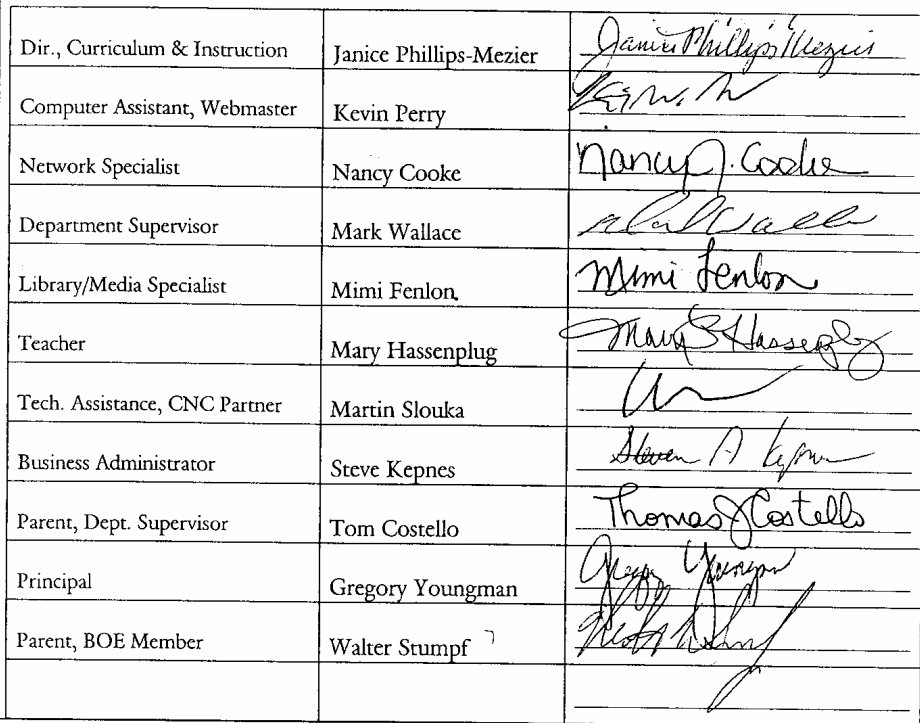 Dir., Curriculum & Instruction Janice Phillips-Mezier Janice Phillips-Mezier
Computer Assistant, Webmaster Kevin Perry
Network Specialist Nancy Cooke Nancy J. Cooke
Department Supervisor Mark Wallace Mark Wallace
Library/Media Specialist Mimi Fenlon Mimi Fenlon
Teacher Mary Hassenplug Mary S Hassenplug
Tech. Assistance, CNC Partner Martin Slouka
Business Administrator Steve Kepnes Steven A Kepnes
Parent, Dept. Supervisor Tom Costello Thomas J Costello
Principal Gregory Youngman Gregory Youngman
Parent, BOE Member Walter Stumpf